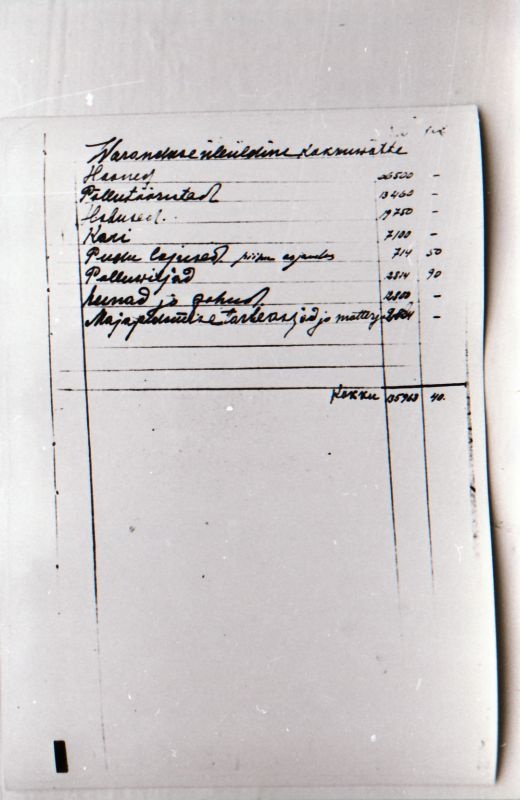 Waranduse üleüldine kokkuwõtte
Hooned 26500 -
Põllutööriistad 13460 -
Hobused 19750 -
Kari 7100 -
Pudu lojused 714 50
Põlluwiljad 2814 90
heinad ja põhud 12800 -
Majapidamise tarbeasjad ja -
Kokku 135963 40.